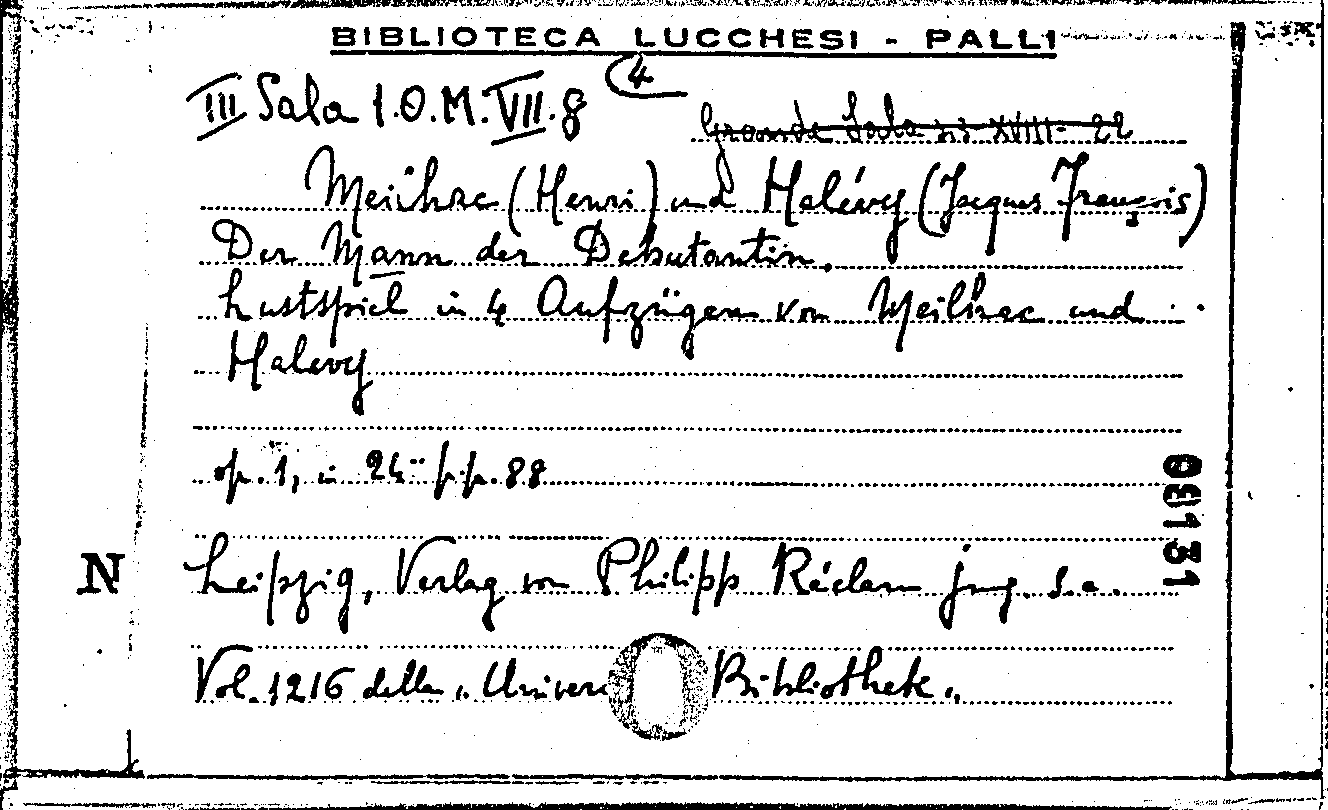 BIBLIOTECA LUCCHESI - PALLI
III Sala 1.O.M.VII.8 (4
Grande Sala 23 XVIII- 22
Meilhac (Henri) und Halévy (Jacques François)
Der Mann der Debutantin.
Lustspiel in 4 Aufzügen von Meilhac und
Halevy
op. 1, in 24° pp. 88
08131
N
Leipzig, Verlag von Philipp Réclam jung. s.a.
Vol. 1216 della „ Univers Bibliothek „